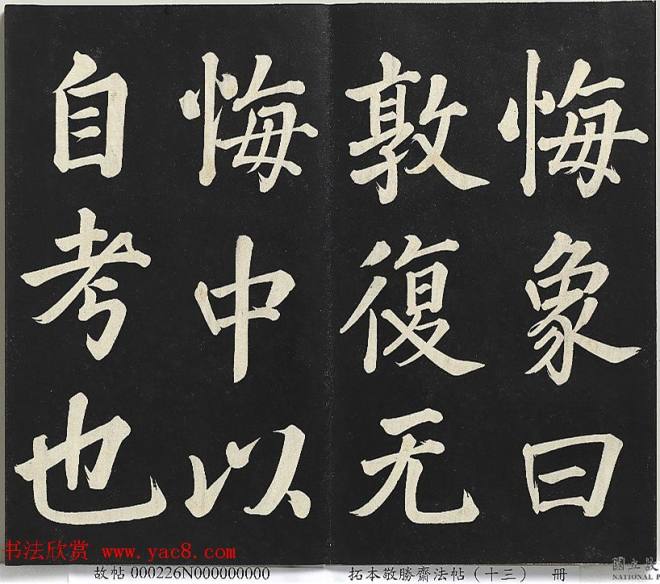 悔象曰
敦復无
悔中以
自考也
书法欣赏 www.yac8.com
故帖 000226N000000000
拓本敬勝齋法帖（十三） 冊
國立故
NATIONAL